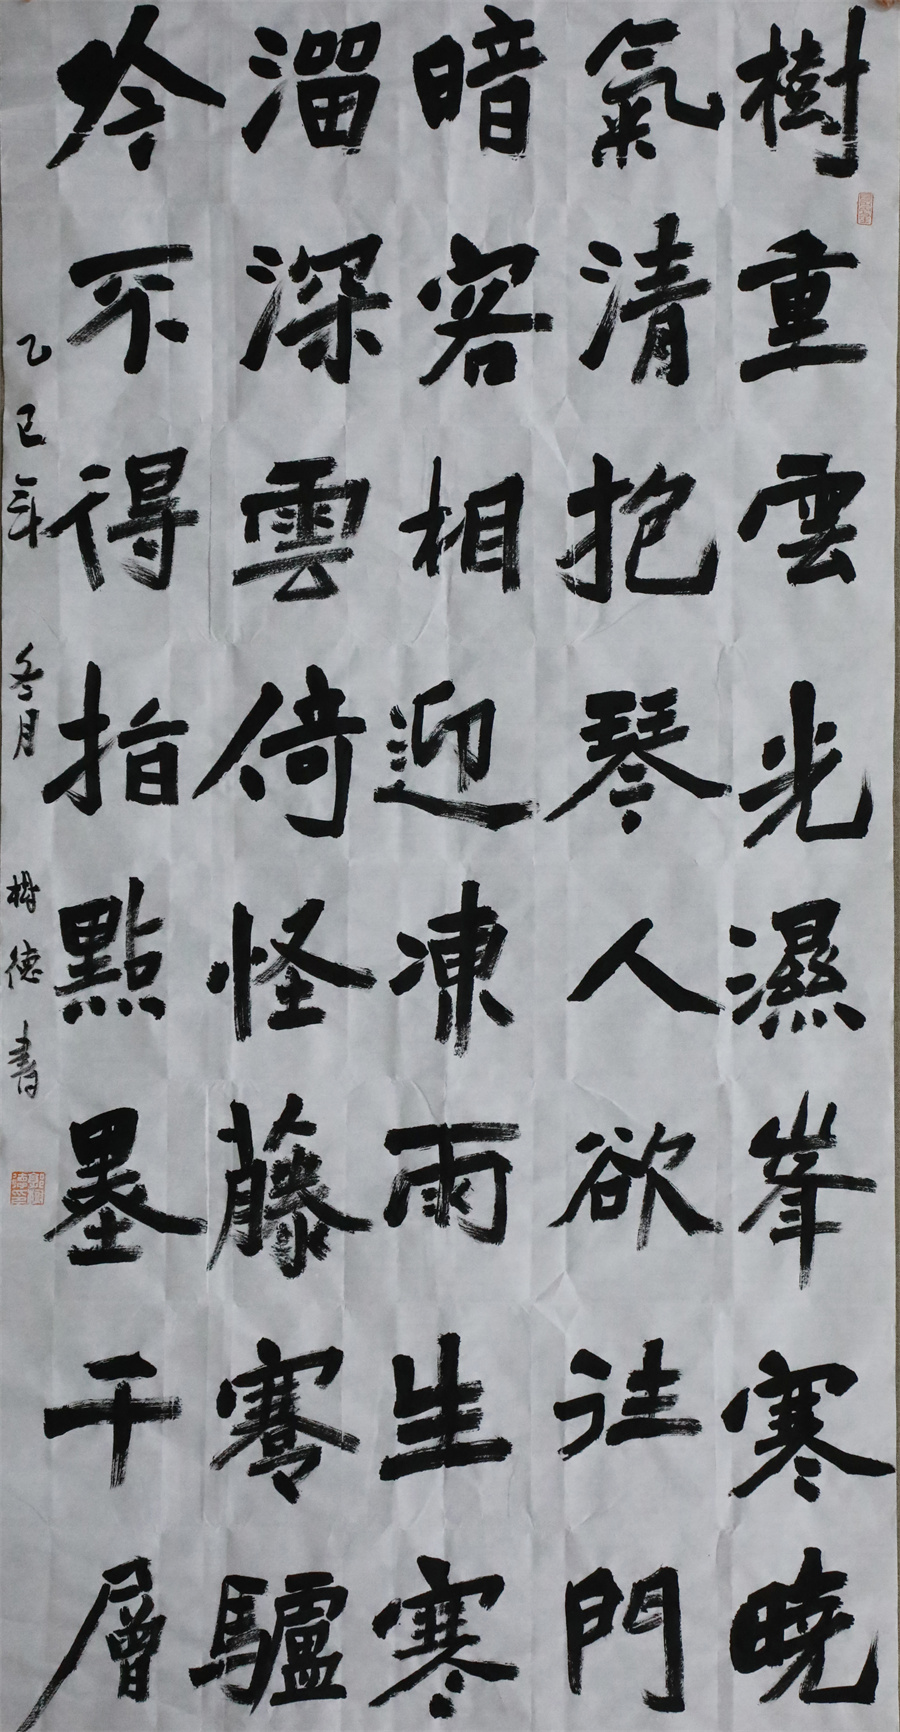 樹重雲光濕峯寒曉
氣清抱琴人欲往門
暗客相迎凍雨生寒
溜深雲倚怪藤騫驢
吟不得指點墨千層
乙巳年冬月樹德書